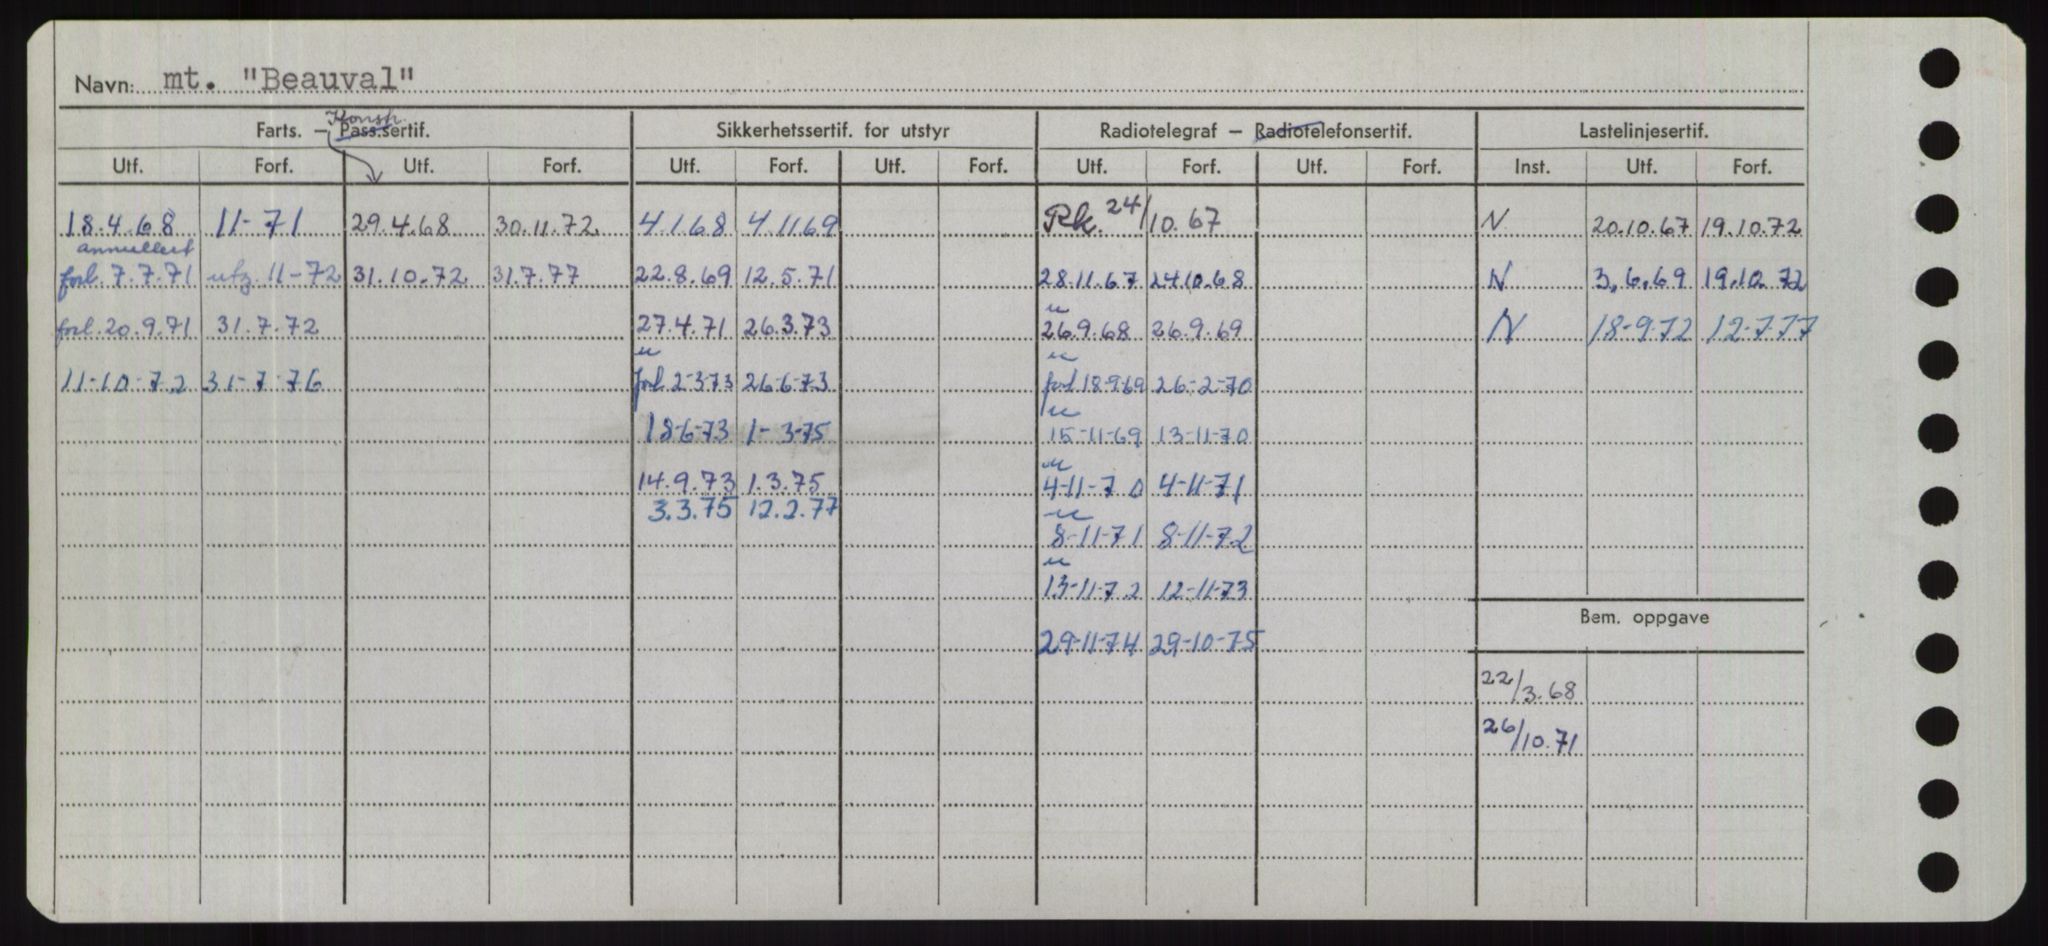 Navn: mt. "Beauval"
Konstr.
Farts. — Pass.sertif. Sikkerhetssertif. for utstyr Radiotelegraf — Radiotelefonsertif. Lastelinjesertif.
Utf. Forf. Utf. Forf. Utf. Forf. Utf. Forf. Utf. Forf. Utf. Forf. Inst. Utf. Forf.
18.4.68 11-71 29.4.68 30.11.72 4.1.68 4.11.69 Rk. 24/10.67 N 20.10.67 19.10.72
annullert
forl. 7.7.71 utg. 11-72 31.10.72 31.7.77 22.8.69 12.5.71 28.11.67 24.10.68 N 3.6.69 19.10.72
u
forl. 20.9.71 31.7.72 27.4.71 26.3.73 26.9.68 26.9.69 N 18-9.72 12-7.77
u u
11-10-72 31-7-76 forl 2-3-73 26-6-73 forl 18-9-69 26-2-70
u
18-6-73 1-3-75 15-11-69 13-11-70
u
14.9.73 1.3.75 4-11-70 4-11-71
3.3.75 12.2.77
u
8-11-71 8-11-72
u
13-11-72 12-11-73
Bem. oppgave
29-11-74 29-10-75
22/3.68
26/10.71